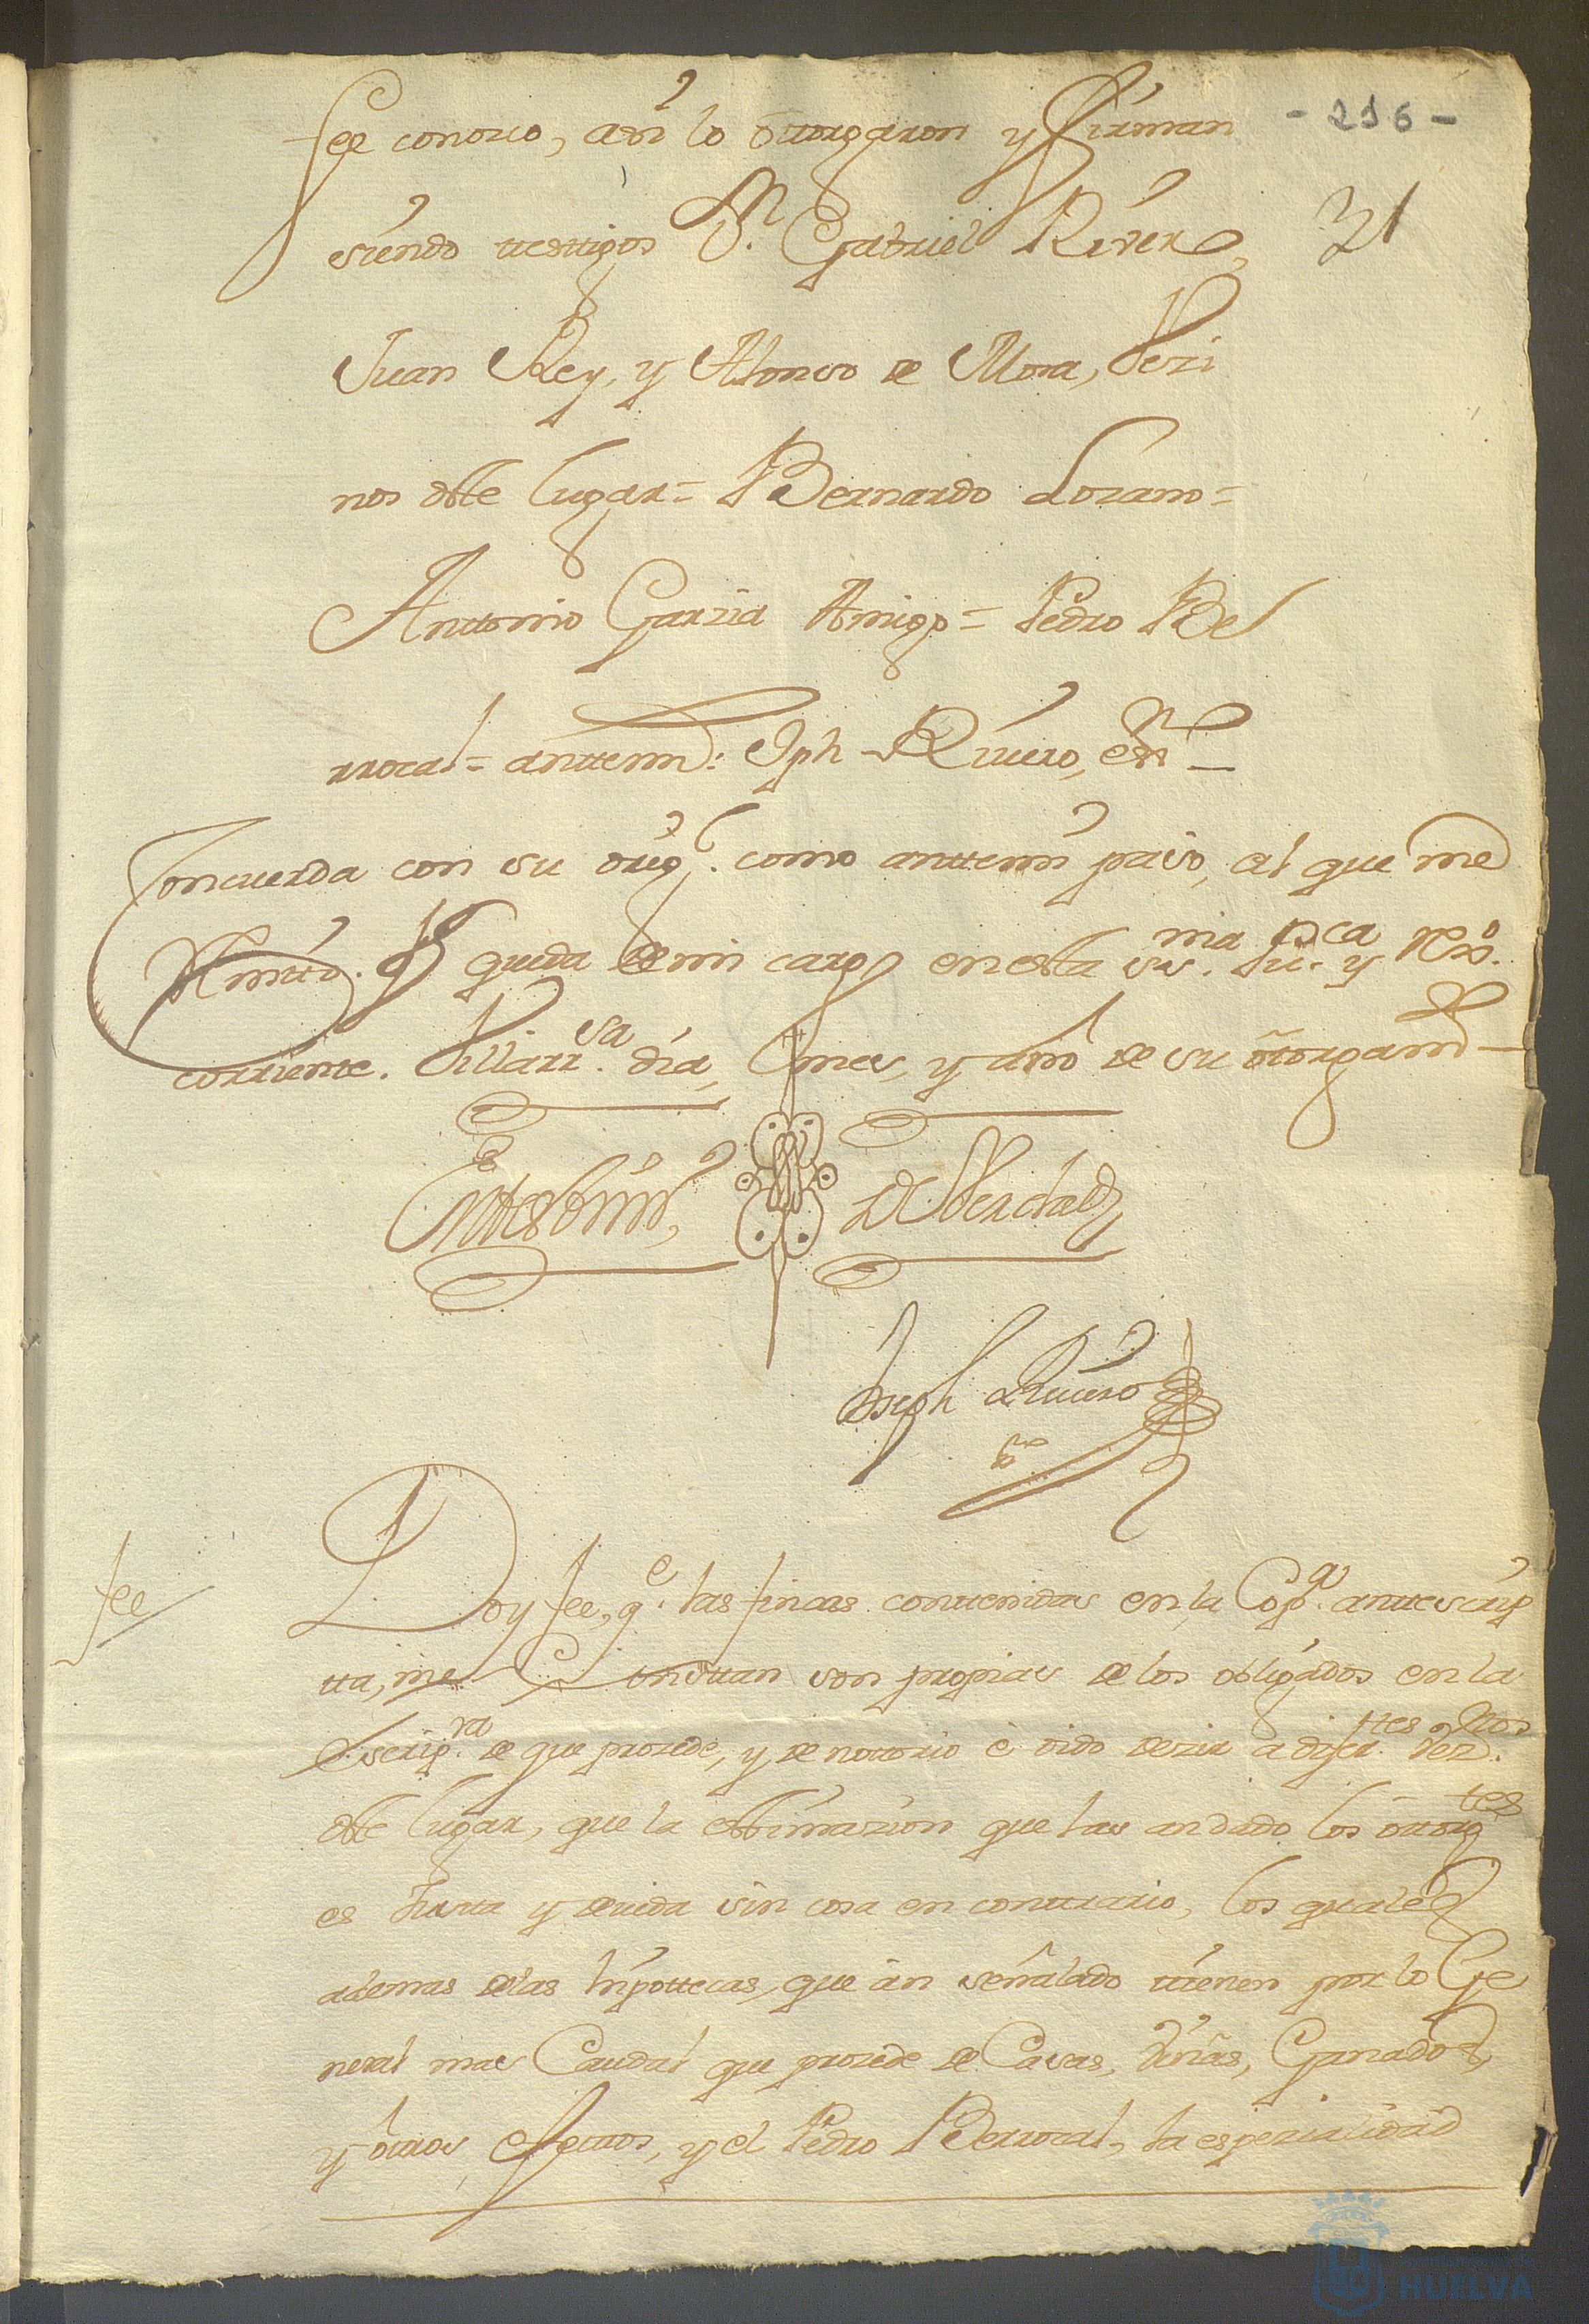 fee conozco, asi lo ôtorgaron y firman - 216 -
siendo testtigos Dn. Gabriel Rivera, 21
Juan Rey, y Alonso de Mora, Vezi
nos deste lugar = Bernardo Lozano =
Anttonio Garzia Amigo = Pedro Be
rrocal = anttemi: Jph Rivero, essno
Concuerda con su orig.l como anttemi pasó, al que me
Remito. q queda de mi cargo en esta ssma. pu.ca y Rexo.
corriente. Villarrsa. dia, mes, y año de su ôtorgamto
En testimo de Verdad
Joseph Rivero
esno
fee
Doy fee, q.e las fincas conttenidas en la Cop.a anttescrip
tta, me Constan son propias de los obligados en la
Escrip.ra de que prozede, y de nottorio è oido dezir a difer.tes vez.nos
deste lugar, que la esttimazion que las an dado los ôtorg.tes
es Justa y devida sin cosa en conttrario, los quales
ademas de las hipottecas, que àn señalado tienen por lo Ge
neral mas Caudal que prozede de Casas, Viñas, Ganados,
y ôttros efecttos, y el Pedro Berrocal, la espezialidad
HUELVA